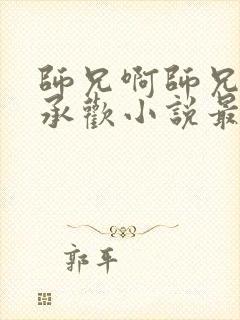 師兄啊師兄
承歡小說最
郭平